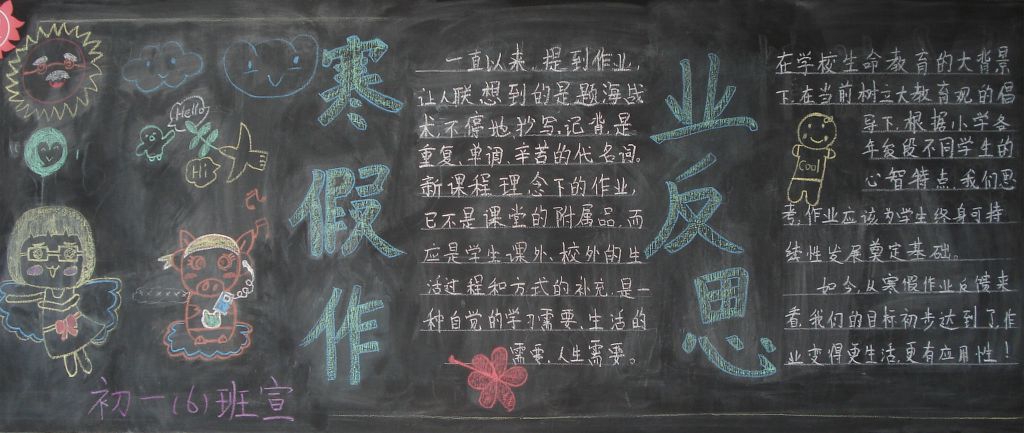 Hello
Hi
初一(6)班宣
寒假作
业反思
一直以来,提到作业,
让人联想到的是题海战
术,不停地抄写、记背,是
重复、单调、辛苦的代名词。
新课程理念下的作业,
已不是课堂的附属品,而
应是学生课外、校外的生
活过程和方式的补充,是一
种自觉的学习需要、生活的
需要、人生需要。
在学校生命教育的大背景
下,在当前树立大教育观的倡
导下,根据小学各
年级段不同学生的
心智特点,我们思
考,作业应该为学生终身可持
续性发展奠定基础。
如今,从寒假作业反馈来
看,我们的目标初步达到了,作
业变得更生活,更有应用性!
Cool